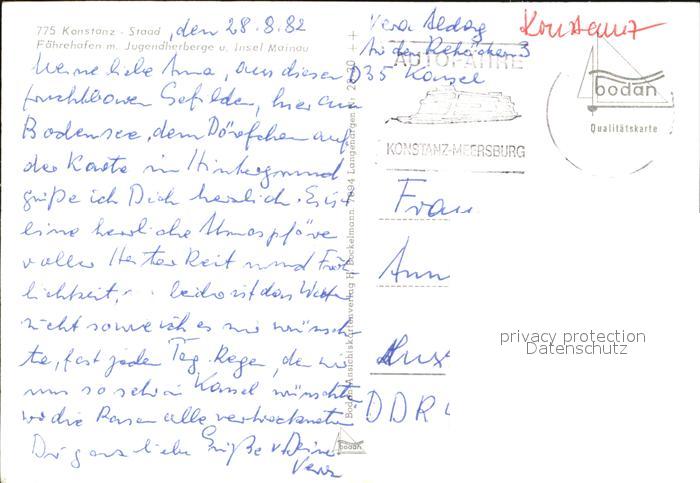 775 Konstanz - Staad , den 28.8.82
Fährehafen m. Jugendherberge u. Insel Mainau
Meine liebe Anna, aus diesen
fruchtbaren Gefilden, hier am
Bodensee, dem Dörfchen auf
der Karte im Hintergrund
grüße ich Dich herzlich. Es ist
eine herrliche Atmospfäre
voller Heiterkeit und Fröh
lichkeit, leider ist das Wetter
nicht so wie ich es mir wünsch
te, fast jeden Tag Regen, den wir
uns so sehr in Kassel wünschten
wo die Rasen alle vertrockneten
Dir ganz liebe Grüße v. Deiner
Vera
Bodan-Ansichtskartenverlag H. Bockelmann 7994 Langenargen
bodan
Vera
An den Rehäckern 3
D35 Kassel
Konstanz
AUTOFÄHRE
KONSTANZ-MEERSBURG
bodan
Qualitätskarte
Frau
Ann
DDR
privacy protection
Datenschutz